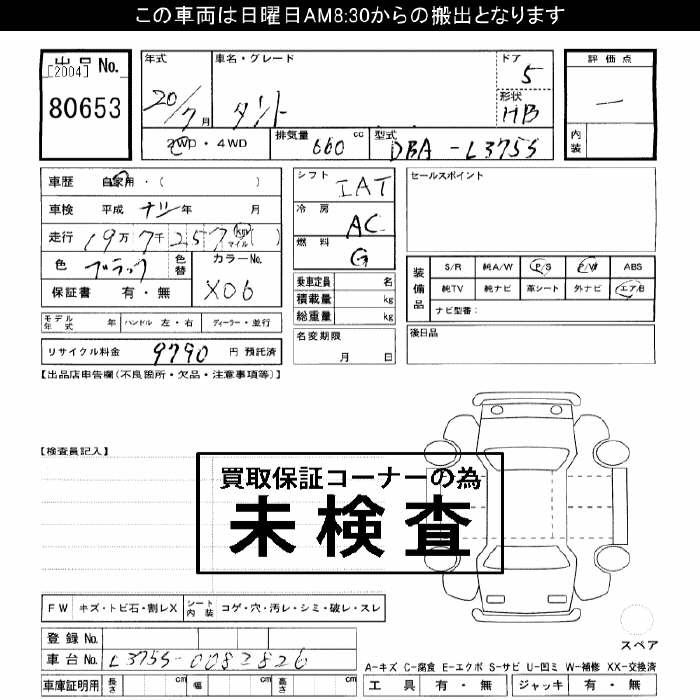 この車両は日曜日AM8:30からの搬出となります
出品 No.
[2004]
80653
年式
20/7月
車名・グレード
タント
ドア
5
形状
HB
評価点
―
内装
2WD・4WD
排気量 cc
660
型式
DBA-L375S
車歴 自家用・( )
車検 平成 ナシ 年 月
走行 19万7千257 km マイル ( )
色 ブラック
色替
カラーNo.
X06
保証書 有・無
シフト
IAT
冷房
AC
燃料
G
乗車定員 名
積載量 kg
総重量 kg
セールスポイント
装備品
S/R 純A/W P/S P/W ABS
純TV 純ナビ 革シート 外ナビ エアB
ナビ型番:
モデル年式 年 ハンドル 左・右 ディーラー・並行
名変期限
月 日
後日品
リサイクル料金 9790 円 預託済
【出品店申告欄(不良箇所・欠品・注意事項等)】
【検査員記入】
買取保証コーナーの為
未検査
FW キズ・トビ石・割レX シート内装 コゲ・穴・汚レ・シミ・破レ・スレ
登録 No.
車台 No. L375S-0082826
車庫証明用 長さ cm 幅 cm 高さ cm
スペア
A-キズ C-腐食 E-エクボ S-サビ U-凹ミ W-補修 XX-交換済
工具 有・無 ジャッキ 有・無